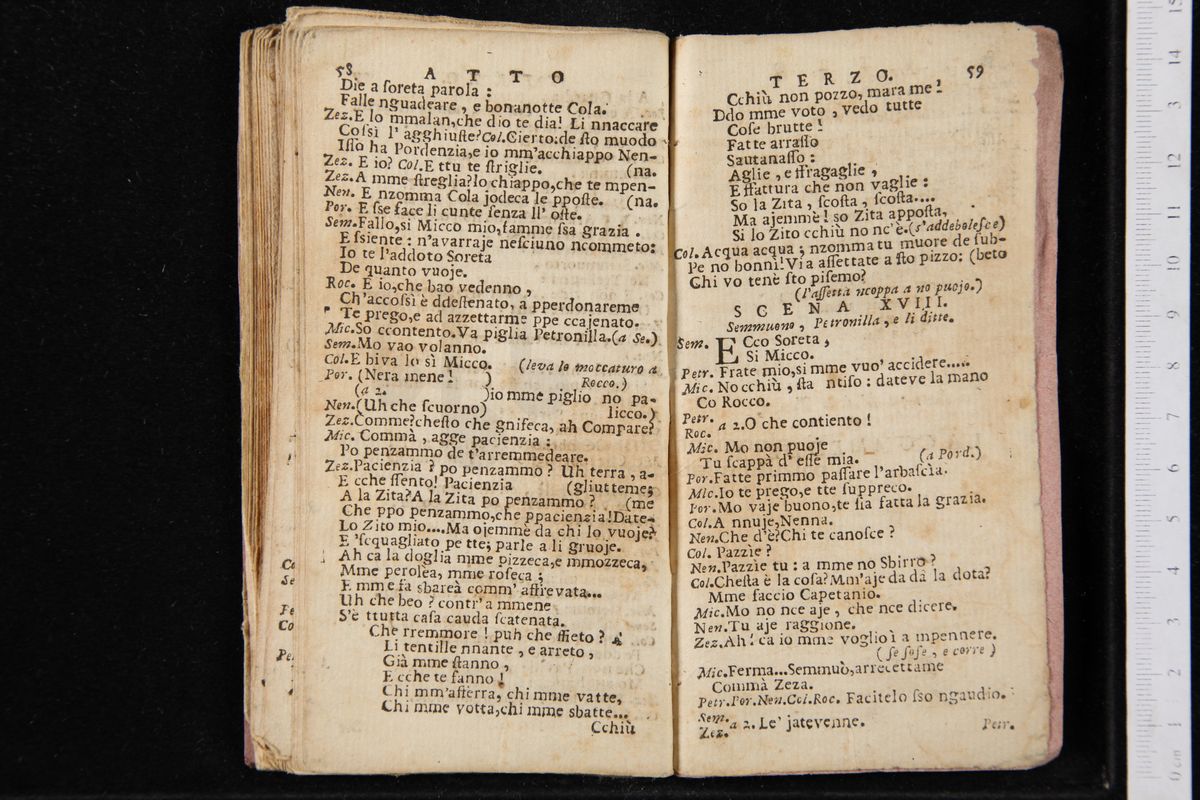 58 ATTO
Die a soreta parola :
Falle nguadeare , e bonanotte Cola.
Zez.E lo mmalan,che dio te dia! Li nnaccare
Cossì l' agghiuste?Col.Cierto:de sto muodo
Isso ha Pordenzia,e io mm'acchiappo Nen-
Zez. E io? Col.E ttu te striglie. (na.
Zez.A mme streglia?lo chiappo,che te mpen-
Nen. E nzomma Cola jodeca le pposte. (na.
Por. E sse face li cunte senza ll' oste.
Sem.Fallo,si Micco mio,famme ssa grazia .
E ssiente : n'avarraje nesciuno ncommeto:
Io te l'addoto Soreta
De quanto vuoje.
Roc. E io,che bao vedenno ,
Ch'accossì è ddestenato, a pperdonareme
Te prego,e ad azzettarme ppe ccajenato.
Mic.So ccontento.Va piglia Petronilla.(a Se.)
Sem.Mo vao volanno.
Col.E biva lo sì Micco. (leva lo moccaturo a
Por. (Nera mene! ) Rocco.)
(a 2. )io mme piglio no pa-
Nen.(Uh che scuorno) licco.)
Zez.Comme?chesto che gnifeca, ah Compare?
Mic. Commà , agge pacienzia :
Po penzammo de t'arremmedeare.
Zez.Pacienzia ? po penzammo ? Uh terra , a-
E cche ssento! Pacienzia (gliutteme;
A la Zita?A la Zita po penzammo ? (me
Che ppo penzammo,che ppacienzia!Date-
Lo Zito mio....Ma ojemmè da chi lo vuoje?
E 'squagliato pe tte; parle a li gruoje.
Ah ca la doglia mme pizzeca,e mmozzeca,
Mme perolea, mme roseca ;
E mme fa sbareà comm' affrevata...
Uh che beo ? contr'a mmene
S'è ttutta casa cauda scatenata.
Che rremmore ! puh che ffieto ?
Li tentille nnante , e arreto ,
Già mme stanno ,
E cche te fanno !
Chi mm'afferra, chi mme vatte,
Chi mme votta,chi mme sbatte...
Cchiù
TERZO. 59
Cchiù non pozzo, mara me !
Ddo mme voto , vedo tutte
Cose brutte !
Fatte arrasso
Sautanasso :
Aglie , e ffragaglie ,
E ffattura che non vaglie :
So la Zita , scosta , scosta....
Ma ajemmè ! so Zita apposta,
Si lo Zito cchiù no nc'è.(s'addebolesce)
Col.Acqua acqua ; nzomma tu muore de sub-
Pe no bonnì!Via assettate a sto pizzo: (beto
Chi vo tenè sto pisemo?
(l'assetta ncoppa a no puojo.)
SCENA XVIII.
Semmuono , Petronilla , e li ditte.
Sem. ECco Soreta ,
Si Micco.
Petr. Frate mio,si mme vuo' accidere.....
Mic. No cchiù , sta ntiso : dateve la mano
Co Rocco.
Petr.
Roc. a 2.O che contiento !
Mic. Mo non puoje
Tu scappà d' esse mia. (a Pord.)
Por.Fatte primmo passare l'arbascìa.
Mic.Io te prego,e tte suppreco.
Por.Mo vaje buono,te sia fatta la grazia.
Col.A nnuje,Nenna.
Nen.Che d'è?Chi te canosce ?
Col. Pazzìe ?
Nen.Pazzìe tu : a mme no Sbirro ?
Col.Chesta è la cosa? Mm'aje da dà la dota?
Mme faccio Capetanio.
Mic.Mo no nce aje , che nce dicere.
Nen.Tu aje raggione.
Zez.Ah! ca io mme voglio ì a mpennere.
(se sose , e corre )
Mic.Ferma...Semmuò,arrecettame
Commà Zeza.
Petr.Por.Nen.Col.Roc. Facitelo sso ngaudio.
Sem.
Zez. a 2. Le' jatevenne.
Petr.